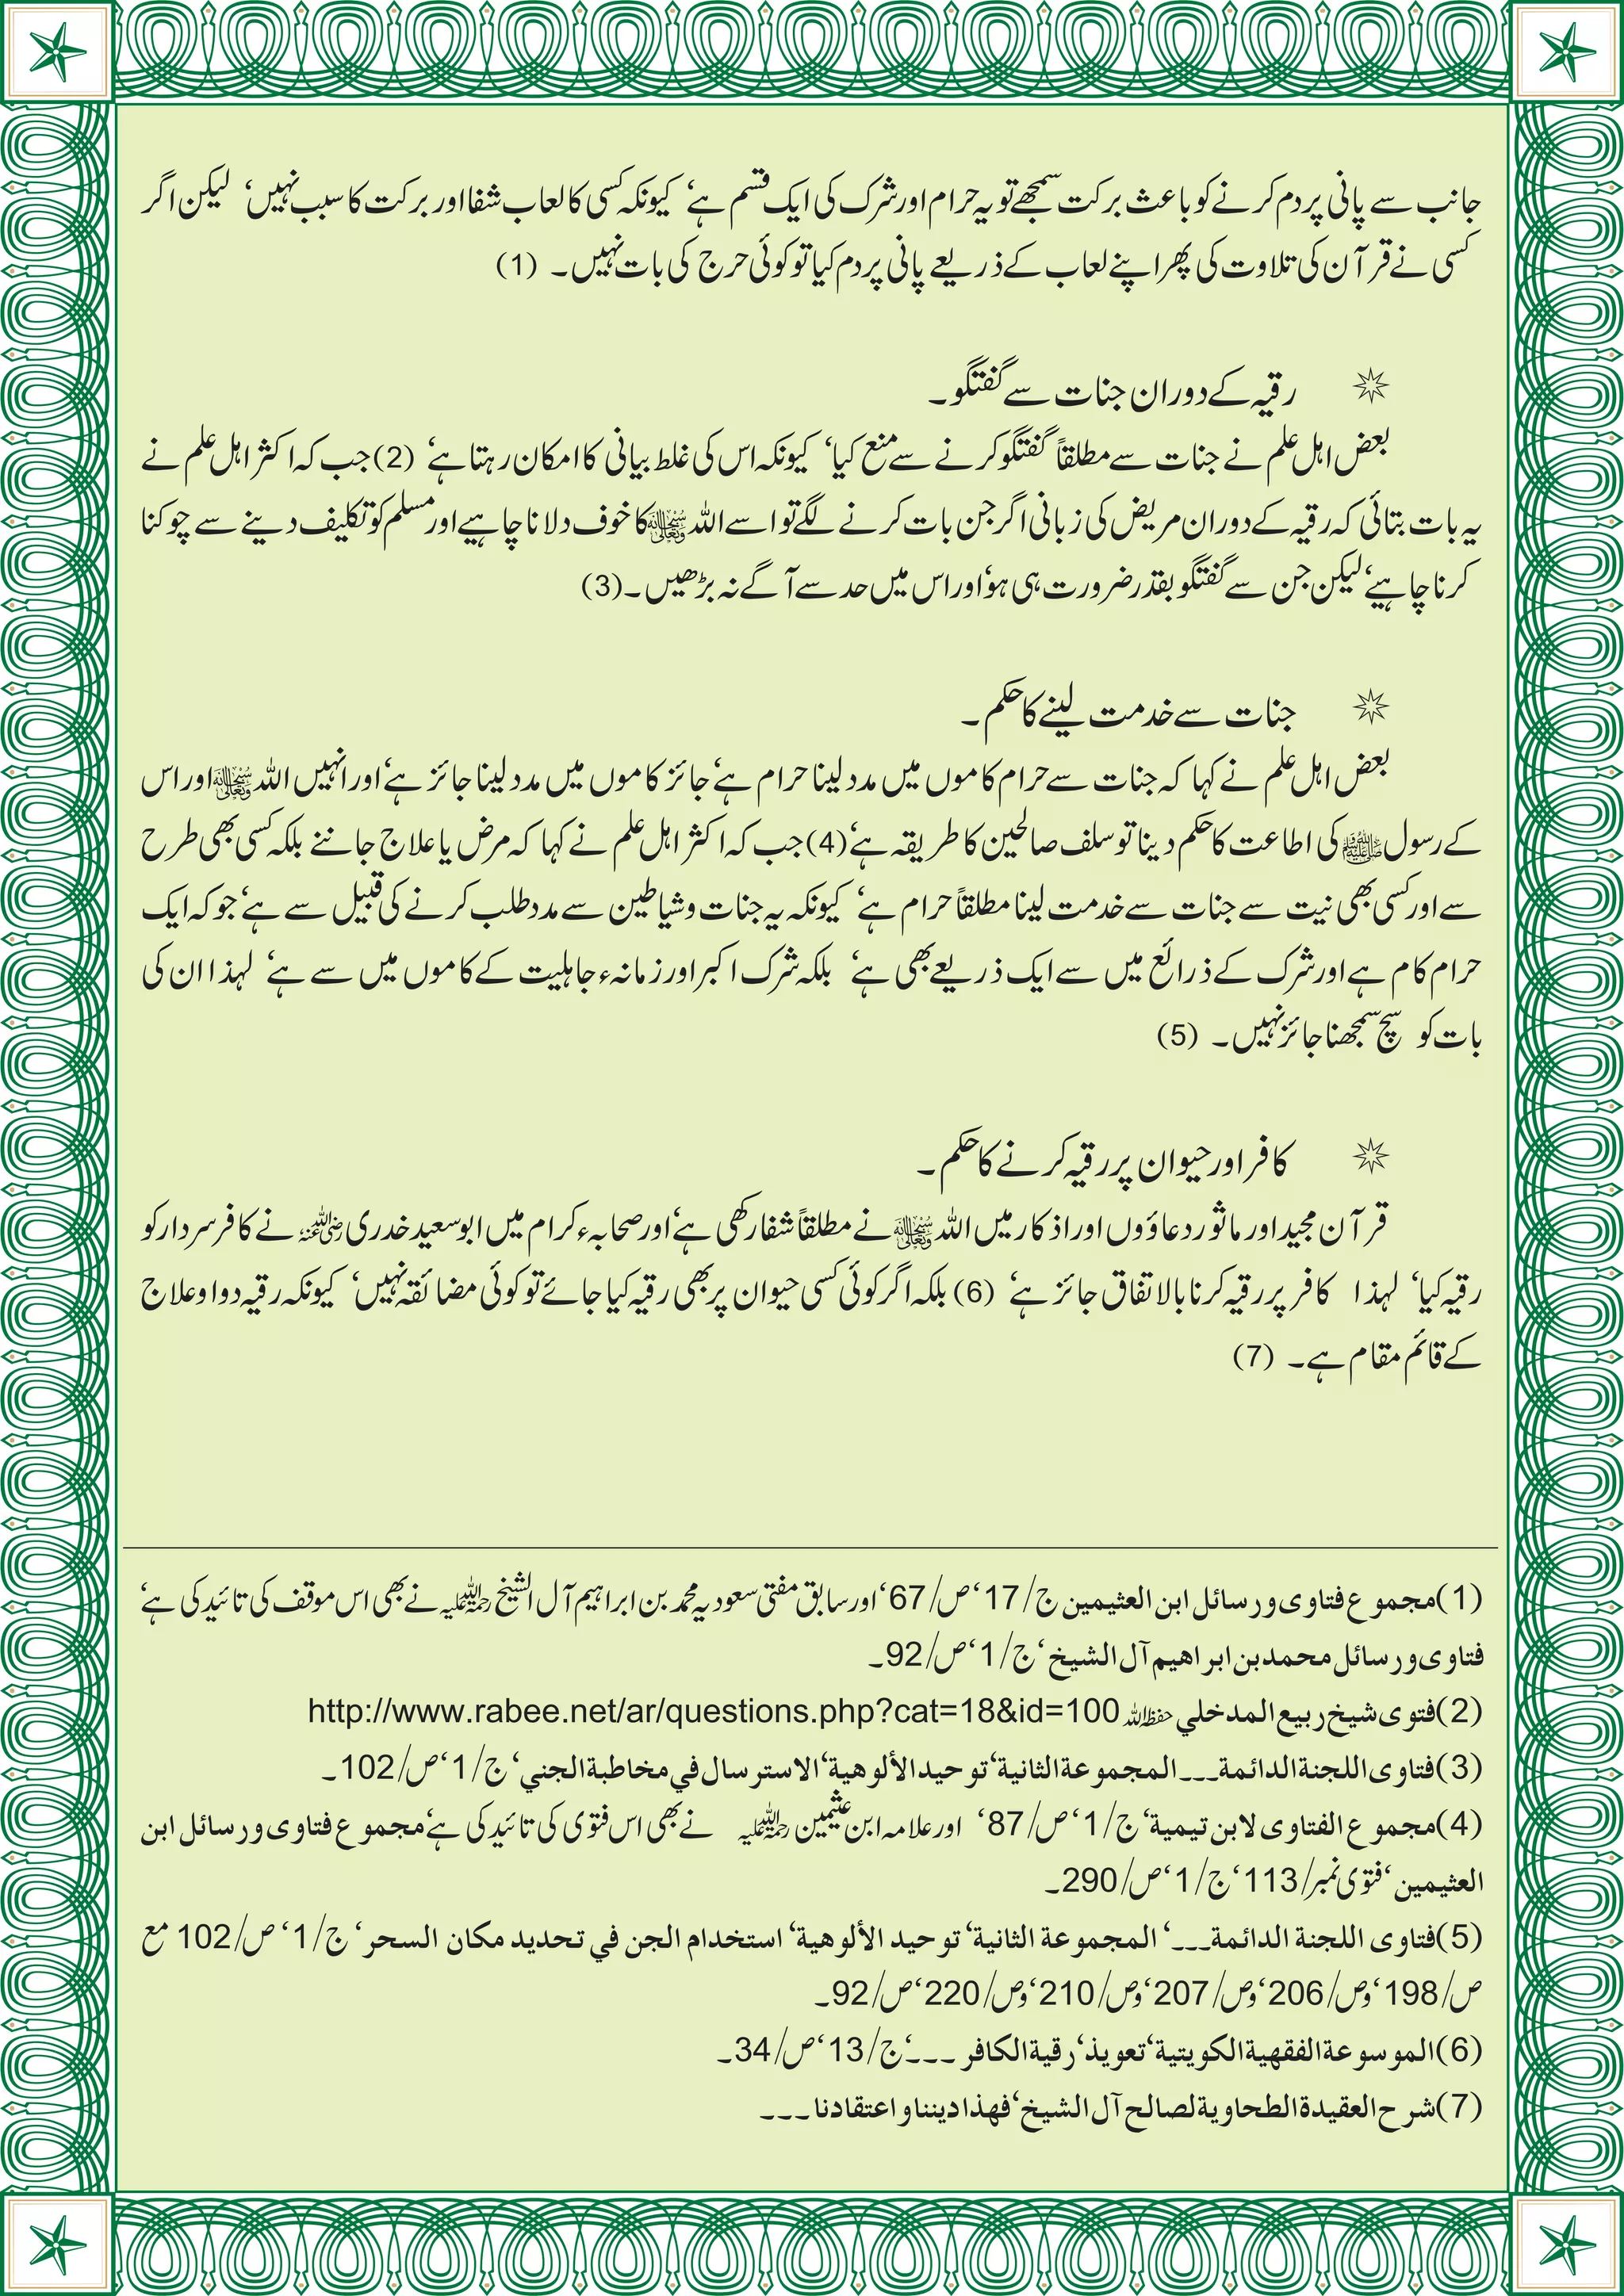 جانب سے پانی پر دم کرنے کو باعث برکت سمجھے تو یہ حرام اور شرک کی ایک قسم ہے‘ کیونکہ کسی کا لعاب شفا اور برکت کا سبب نہیں‘ لیکن اگر
کسی نے قرآن کی تلاوت کی پھر اپنے لعاب کے ذریعے پانی پر دم کیا تو کوئی حرج کی بات نہیں۔ (1)
رقیہ کے دوران جنات سے گفتگو۔
بعض اہل علم نے جنات سے مطلقاً گفتگو کرنے سے منع کیا‘ کیونکہ اس کی غلط بیانی کا امکان رہتا ہے‘ (2) جب کہ اکثر اہل علم نے
یہ بات بتائی کہ رقیہ کے دوران مریض کی زبانی اگر جن بات کرنے لگے تو اسے اللہ سبحانہ وتعالیٰ کا خوف دلانا چاہیے اور مسلم کو تکلیف دینے سے چوکنا
کرنا چاہیے‘ لیکن جن سے گفتگو بقدر ضرورت ہی ہو‘ اور اس میں حد سے آگے نہ بڑھیں۔ (3)
جنات سے خدمت لینے کا حکم۔
بعض اہل علم نے کہا کہ جنات سے حرام کاموں میں مدد لینا حرام ہے‘ جائز کاموں میں مدد لینا جائز ہے‘ اور انہیں اللہ سبحانہ وتعالیٰ اور اس
کے رسول ﷺ کی اطاعت کا حکم دینا تو سلف صالحین کا طریقہ ہے‘ (4) جب کہ اکثر اہل علم نے کہا کہ مرض یا علاج جاننے بلکہ کسی بھی طرح
سے اور کسی بھی نیت سے جنات سے خدمت لینا مطلقاً حرام ہے‘ کیونکہ یہ جنات وشیاطین سے مدد طلب کرنے کی قبیل سے ہے‘ جو کہ ایک
حرام کام ہے اور شرک کے ذرائع میں سے ایک ذریعے بھی ہے‘ بلکہ شرک اکبر اور زمانہء جاہلیت کے کاموں میں سے ہے‘ لہذا ان کی
بات کو سچ سمجھنا جائز نہیں۔ (5)
کافر اور حیوان پر رقیہ کرنے کا حکم۔
قرآن مجید اور ماثور دعاؤوں اور اذکار میں اللہ سبحانہ وتعالیٰ نے مطلقاً شفا رکھی ہے‘ اور صحابہء کرام میں ابوسعید خدری رضی اللہ عنہ نے کافر سردار کو
رقیہ کیا‘ لہذا کافر پر رقیہ کرنا بالاتفاق جائز ہے‘ (6) بلکہ اگر کوئی کسی حیوان پر بھی رقیہ کیا جائے تو کوئی مضائقہ نہیں‘ کیونکہ رقیہ دوا وعلاج
کے قائم مقام ہے۔ (7)
(1) مجموع فتاوی ورسائل ابن العثیمین ج/17‘ ص/67‘ اور سابق مفتی سعودیہ محمد بن ابراہیم آل الشیخ رحمۃ اللہ علیہ نے بھی اس موقف کی تائید کی ہے‘
فتاوی ورسائل محمد بن ابراهیم آل الشیخ‘ ج/1‘ ص/92۔
(2) فتوی شیخ ربیع المدخلي حفظہ اللہ http://www.rabee.net/ar/questions.php?cat=18&id=100
(3) فتاوی اللجنة الدائمة۔۔۔ المجموعة الثانية‘ توحید الألوهية‘ الاسترسال في مخاطبة الجني‘ ج/1‘ ص/102۔
(4) مجموع الفتاوی لابن تيمية‘ ج/1‘ ص/87‘ اور علامہ ابن عثیمین رحمۃ اللہ علیہ نے بھی اس فتوی کی تائید کی ہے‘ مجموع فتاوی ورسائل ابن
العثیمین‘ فتوی نمبر/113‘ ج/1‘ ص/290۔
(5) فتاوی اللجنة الدائمة۔۔۔‘ المجموعة الثانية‘ توحید الألوهية‘ استخدام الجن في تحديد مكان السحر‘ ج/1‘ ص/102 مع
ص/198‘ وص/206‘ وص/207‘ وص/210‘ وص/220‘ ص/92۔
(6) الموسوعة الفقهية الكويتية‘ تعويذ‘ رقية الكافر۔۔۔‘ ج/13‘ ص/34۔
(7) شرح العقيدة الطحاوية لصالح آل الشیخ‘ فهذا ديننا واعتقادنا۔۔۔